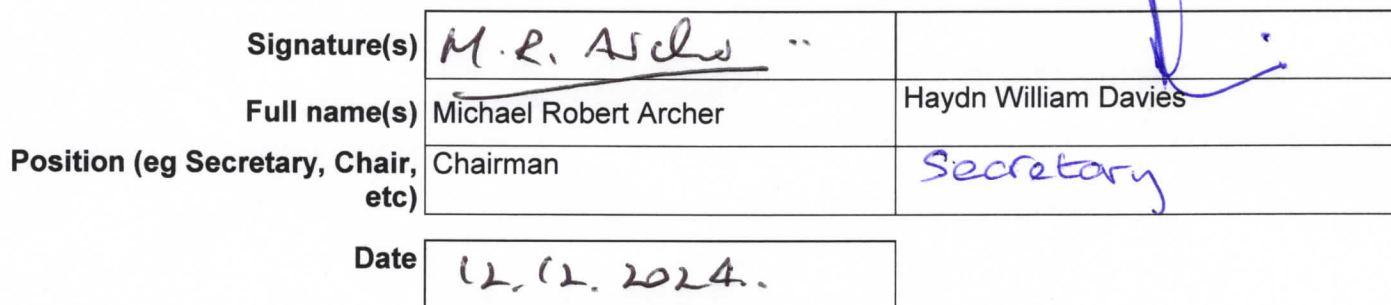 Signature(s) M. R. Archer
Full name(s) Michael Robert Archer Haydn William Davies
Position (eg Secretary, Chair, etc) Chairman Secretary
Date 12.12.2024.